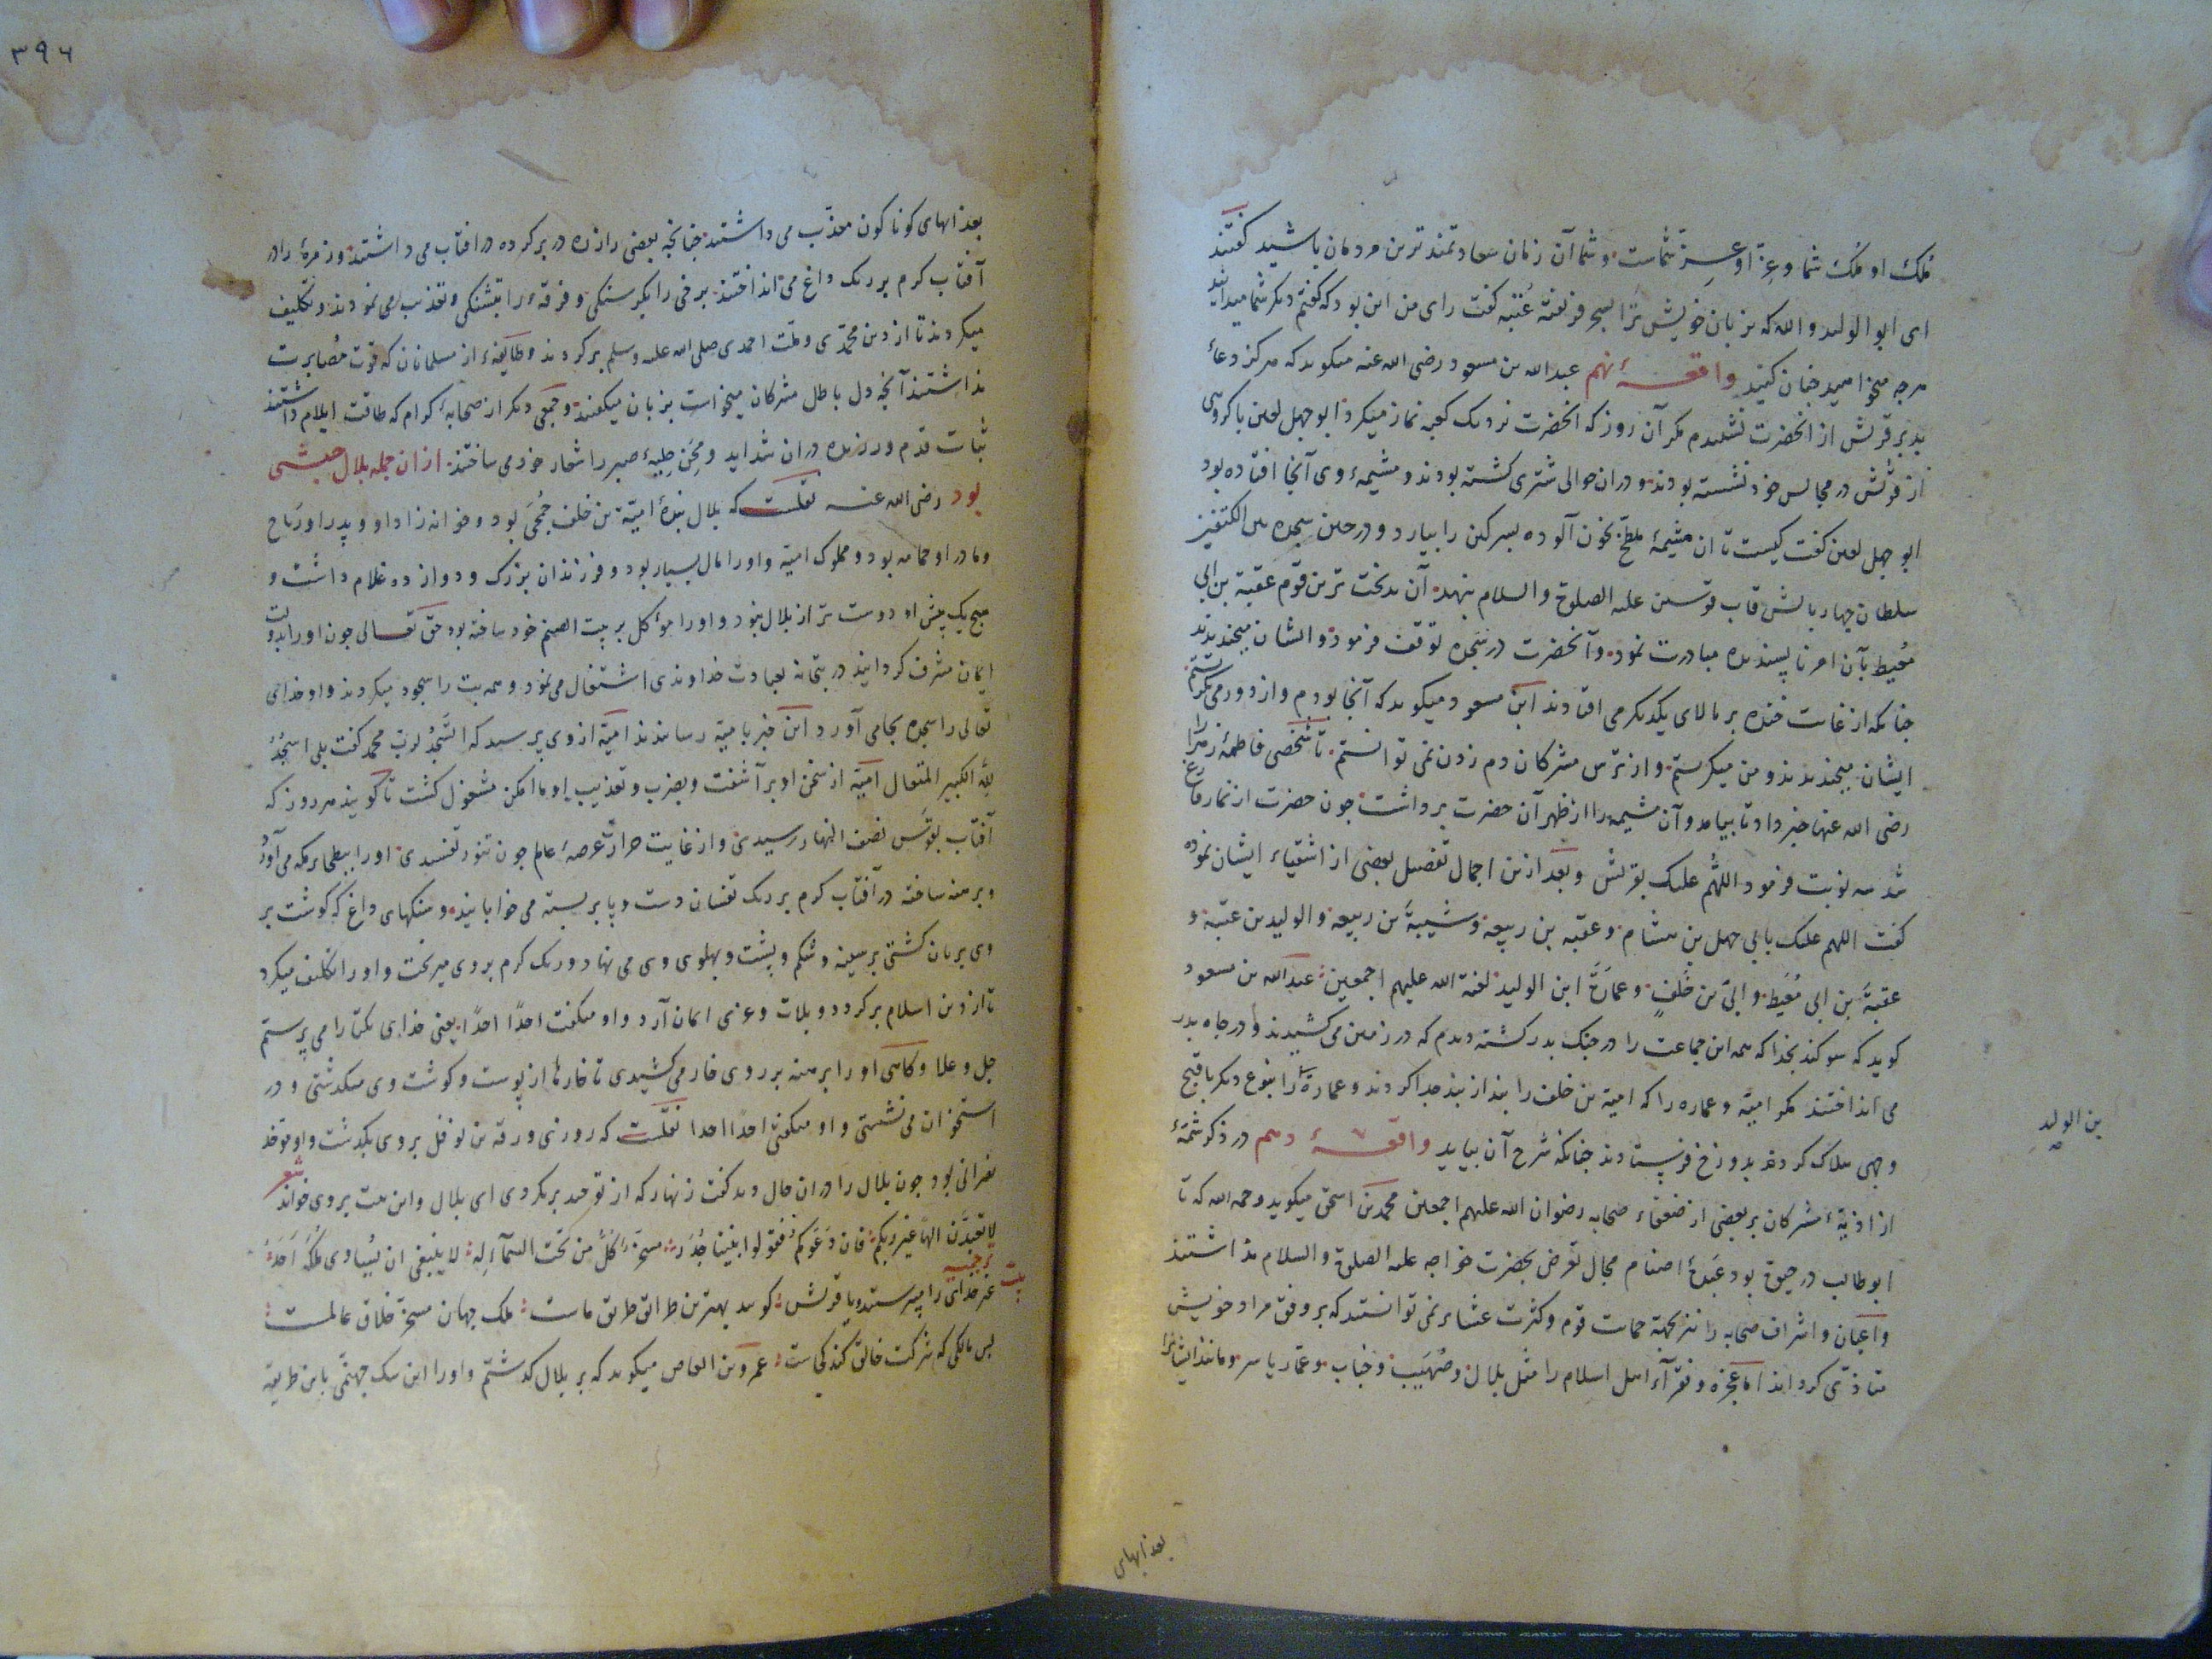 ملک او ملک شما و عزّ او عزّ شماست و شما آن زمان سعادتمندترین مردمان باشید گفتند
ای ابو الولید والله که بزبان خویش ترا سحر فریفته عتبه گفت رای من این بود که گفتم دیگر شما میدانید
هرچه میخواهید چنان کنید واقعهٔ نهم عبد الله بن مسعود رضی الله عنه میگوید که هرگز دعاء
بد بر قریش از انحضرت نشنیدم مگر آن روز که انحضرت نزدیک کعبه نماز میکرد ابو جهل لعین با گروهی
از قریش در مجالس خود نشسته بودند و دران حوالی شتری کشته بودند و مشیمهٔ وی آنجا افتاده بود
ابو جهل لعین گفت کیست تا ان مشیمهٔ ملطخ بخون آلوده بسرکین را بیارد و در حین سجده بین الکتفین
سلطان چهار بالش قاب قوسین علیه الصلوة والسلام بنهد آن بدبخت ترین قوم عقبة بن ابی
معیط بآن امر ناپسندیده مبادرت نمود و آنحضرت در سجده توقف فرمود و ایشان میخندیدند
چنانکه از غایت خنده بر بالای یکدیگر می افتادند ابن مسعود میگوید که آنجا بودم و از دور می نگریستم
ایشان میخندیدند و من میگریستم و از ترس مشرکان دم زدن نمی توانستم تا شخصی فاطمهٔ زهرا را
رضی الله عنها خبر داد تا بیامد و آن مشیمه را از ظهر آن حضرت برداشت چون حضرت از نماز فارغ
شد سه نوبت فرمود اللهم علیک بقریش و بعد ازین اجمال تفصیل بعضی از اشقیاء ایشان نموده
گفت اللهم علیک بابی جهل بن هشام و عتبه بن ربیعة و شیبة بن ربیعه والولید بن عتبة و
عقبة بن ابی معیط و ابیّ بن خلف و عمارة ابن الولید لعنة الله علیهم اجمعین عبد الله بن مسعود
گوید که سوگند بخدا که همه این جماعت را در جنگ بدر کشته دیدم که در زمین می کشیدند و در چاه بدر
می انداختند مگر امیّه و عماره را که امیة بن خلف را بند از بند جدا کردند و عماره را بنوع دیگر باقبح
بن الولید
وجهی هلاک کردند بدوزخ فرستادند چنانکه شرح آن بیاید واقعهٔ دهم در ذکر شمّهٔ
از اذیّة مشرکان بر بعضی از ضعفاء صحابه رضوان الله علیهم اجمعین محمد بن اسحق میگوید رحمه الله که تا
ابو طالب در حیوة بود عبدهٔ اصنام مجال تعرض بحضرت خواجه علیه الصلوة والسلام نداشتند
و اعیان و اشراف صحابه را نیز بجهة حمایت قوم و کثرت عشایر نمی توانستند که بر وفق مراد خویش
متاذّی گردانند اما عجزه و فقرآء اهل اسلام را مثل بلال و صهیب و خباب و عمّار یاسر و مانند ایشانرا
بعذابهای
۳۹۶
بعذابهای کوناکون معذّب می داشتند چنانچه بعضی را زره در بر کرده در افتاب می داشتند و زمرهٔ را در
آفتاب کرم بر ریک داغ می انداختند برخی را بکرسنکی و فرقهٔ را بتشنکی و تعذیب می نمودند و تکلیف
میکردند تا از دین محمّدی و ملت احمدی صلی الله علیه وسلم برکردند و طایفهٔ از مسلمانان که قوت مصابرت
نداشتند آنچه دل باطل مشرکان میخواست بزبان میکفتند و جمعی دیکر از صحابهٔ کرام که طاقت ایلام داشتند
ثبات قدم ورزیده دران شداید و محن جلیهٔ صبر را شعار خود می ساختند ازان جمله بلال حبشی
بود رضی الله عنه نقلست که بلال بندهٔ امیّة بن خلف جمحی بود و خوانه زاد او و پدر او رباح
و مادر او حمامه بود و مملوک امیّه و او را مال بسیار بود و فرزندان بزرک و دوازده غلام داشت و
هیچ یک پیش او دوست تر از بلال نبود و او را موکل بر بیت الصنم خود ساخته بود حق تعالی چون او را بدولت
ایمان مشرف کردانید در بتخانه بعبادت خداوندی اشتغال می نمود و همه بت را سجود میکردند و او خدای
تعالی را سجده بجا می آورد این خبر بامیّه رسانیدند امیّه از وی پرسید که اتسجد لرب محمد کفت بلی اسجد
لله الکبیر المتعال امیّة از سخن او برآشفت و بضرب و تعذیب او ما امکن مشغول کشت تا کویند هر روز که
آفتاب بقوس نصف النهار رسیدی و از غایت حرارت عرصهٔ عالم چون تنور تفسیدی او را ببطحاء مکه می آورد
و برهنه ساخته در آفتاب کرم بر ریک تفسان دست و پا بر بسته می خوابانید و سنکهای داغ که کوشت بر
وی بریان کشتی بر سینه و شکم و پشت و پهلوی وی می نهاد و ریک کرم بر وی میریخت و او را تکلیف میکرد
تا از دین اسلام برکردد و بلات و عزی ایمان آرد و او میکفت احدًا احدًا یعنی خدای یکتا را می پرستم
جل و علا و کاهی او را برهنه بر روی خار می کشیدی تا خارها از پوست و کوشت وی میکذشتی و در
استخوان می نشستی و او میکفتی احدا احدا نقلست که روزی ورقه بن نوفل بر وی بکذشت و او موحد
نصرانی بود چون بلال را دران حال دید کفت زنهار که از توحید برنکردی ای بلال و این بیت بر وی خواند شعر
لا تعبدن الها غیر ربکم فان دعوکم فقولوا بیننا جدد مسخر کل من تحت السمآء له لا ینبغی ان یساوی ملکه احد
ترجمه
بیت غیر خدای را مپرستید یا قریش کوید بهترین طرائق طریق ماست ملک جهان مسخر خلاق عالمست
پس مالکی که شرکت خالق کند کی است عمرو بن العاص میکوید که بر بلال کذشتم و او را این سک جهنمی باین طریقه